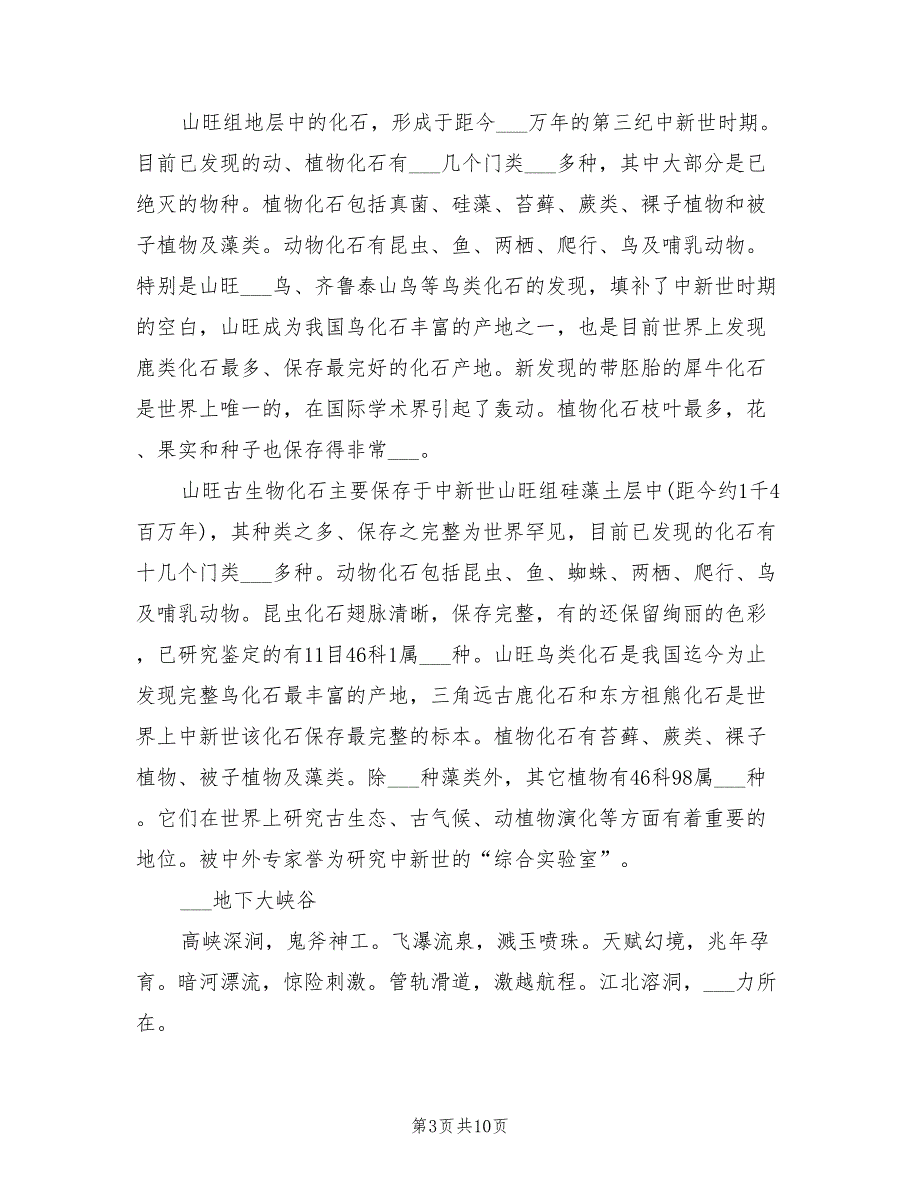 山旺组地层中的化石，形成于距今___万年的第三纪中新世时期。
目前已发现的动、植物化石有___几个门类___多种，其中大部分是已
绝灭的物种。植物化石包括真菌、硅藻、苔藓、蕨类、裸子植物和被
子植物及藻类。动物化石有昆虫、鱼、两栖、爬行、鸟及哺乳动物。
特别是山旺___鸟、齐鲁泰山鸟等鸟类化石的发现，填补了中新世时期
的空白，山旺成为我国鸟化石丰富的产地之一，也是目前世界上发现
鹿类化石最多、保存最完好的化石产地。新发现的带胚胎的犀牛化石
是世界上唯一的，在国际学术界引起了轰动。植物化石枝叶最多，花
、果实和种子也保存得非常___。
山旺古生物化石主要保存于中新世山旺组硅藻土层中(距今约1千4
百万年)，其种类之多、保存之完整为世界罕见，目前已发现的化石有
十几个门类___多种。动物化石包括昆虫、鱼、蜘蛛、两栖、爬行、鸟
及哺乳动物。昆虫化石翅脉清晰，保存完整，有的还保留绚丽的色彩
，已研究鉴定的有11目46科1属___种。山旺鸟类化石是我国迄今为止
发现完整鸟化石最丰富的产地，三角远古鹿化石和东方祖熊化石是世
界上中新世该化石保存最完整的标本。植物化石有苔藓、蕨类、裸子
植物、被子植物及藻类。除___种藻类外，其它植物有46科98属___种
。它们在世界上研究古生态、古气候、动植物演化等方面有着重要的
地位。被中外专家誉为研究中新世的“综合实验室”。
___地下大峡谷
高峡深涧，鬼斧神工。飞瀑流泉，溅玉喷珠。天赋幻境，兆年孕
育。暗河漂流，惊险刺激。管轨滑道，激越航程。江北溶洞，___力所
在。
第3页共10页